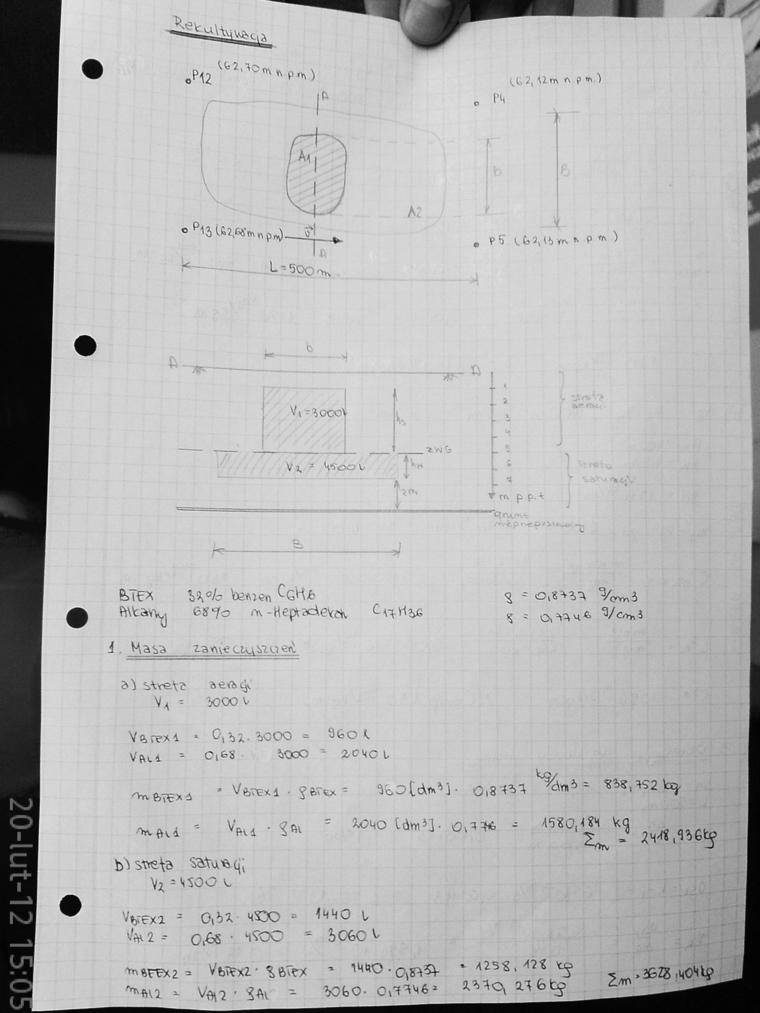 Rekultywacja
P12 (62,70m n.p.m.)
(62,12m n.p.m.)
P4
A
A1
b
B
A2
P13 (62,68m n.p.m)
v
P5 (62,13m n.p.m.)
A
L = 500m
b
A
A
V1 = 3000l
hs
1
2
3
4
5
6
7
strefa aeracji
ZWG
V2 = 4500l
hn
strefa saturacji
2m
m p.p.t
grunt
nieprzepuszczalny
B
BTEX 32% benzen C6H6 ρ = 0,8737 g/cm3
Alkany 68% n-Heptadekan C17H36 ρ = 0,7746 g/cm3
1. Masa zanieczyszczeń
a) strefa aeracji
V1 = 3000 l
VBTEX1 = 0,32 · 3000 = 960 l
VAL1 = 0,68 · 3000 = 2040 l
mBTEX1 = VBTEX1 · ρBTEX = 960 [dm³] · 0,8737 kg/dm3 = 838,752 kg
mAL1 = VAL1 · ρAL = 2040 [dm³] · 0,776 = 1580,184 kg
Σm = 2418,936kg
b) strefa saturacji
V2 = 4500 l
VBTEX2 = 0,32 · 4500 = 1440 l
VAL2 = 0,68 · 4500 = 3060 l
mBTEX2 = VBTEX2 · ρBTEX = 1440 · 0,8737 = 1258,128 kg
Σm = 3628,404kg
mAL2 = VAL2 · ρAL = 3060 · 0,7746 = 2370,276 kg
20-lut-12 15:05